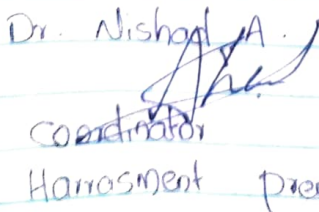 Dr. Nishad A.
Coordinator
Harrasment